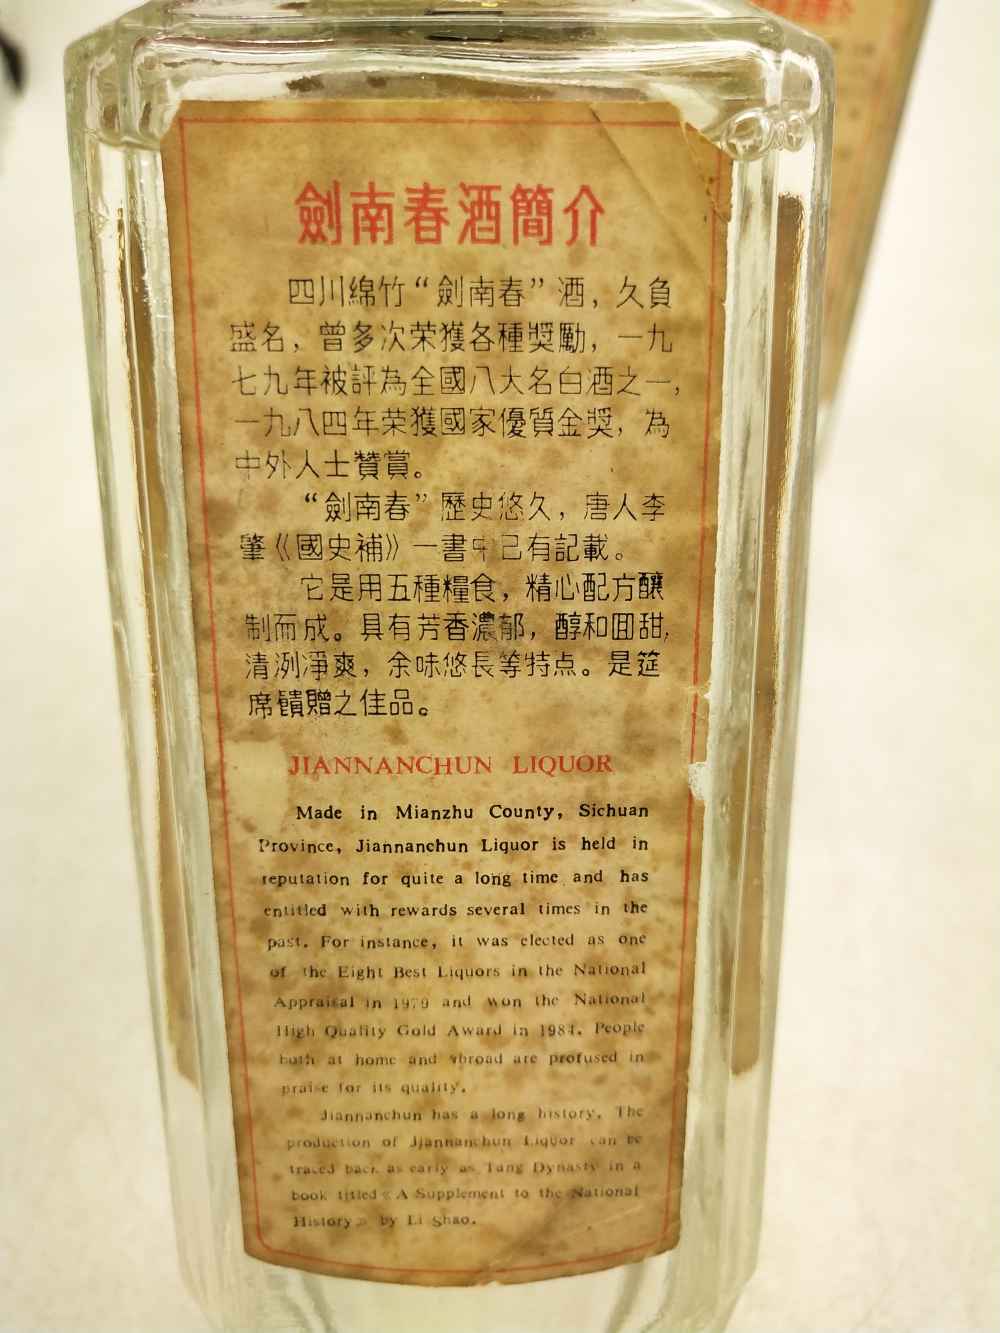 劍南春酒簡介
四川綿竹“劍南春”酒，久負
盛名，曾多次荣獲各種獎勵，一九
七九年被評為全國八大名白酒之一，
一九八四年荣獲國家優質金獎，為
中外人士贊賞。
“劍南春”歷史悠久，唐人李
肇《國史補》一書中已有記載。
它是用五種糧食，精心配方釀
制而成。具有芳香濃郁，醇和囬甜，
清洌凈爽，余味悠長等特点。是筵
席饋贈之佳品。
JIANNANCHUN LIQUOR
Made in Mianzhu County, Sichuan
Province, Jiannanchun Liquor is held in
reputation for quite a long time and has
entitled with rewards several times in the
past. For instance, it was elected as one
of the Eight Best Liquors in the National
Appraisal in 1979 and won the National
High Quality Gold Award in 1984. People
both at home and abroad are profused in
praise for its quality.
Jiannanchun has a long history. The
production of Jiannanchun Liquor can be
traced back as early as Tang Dynasty in a
book titled《A Supplement to the National
History》 by Li Shao.